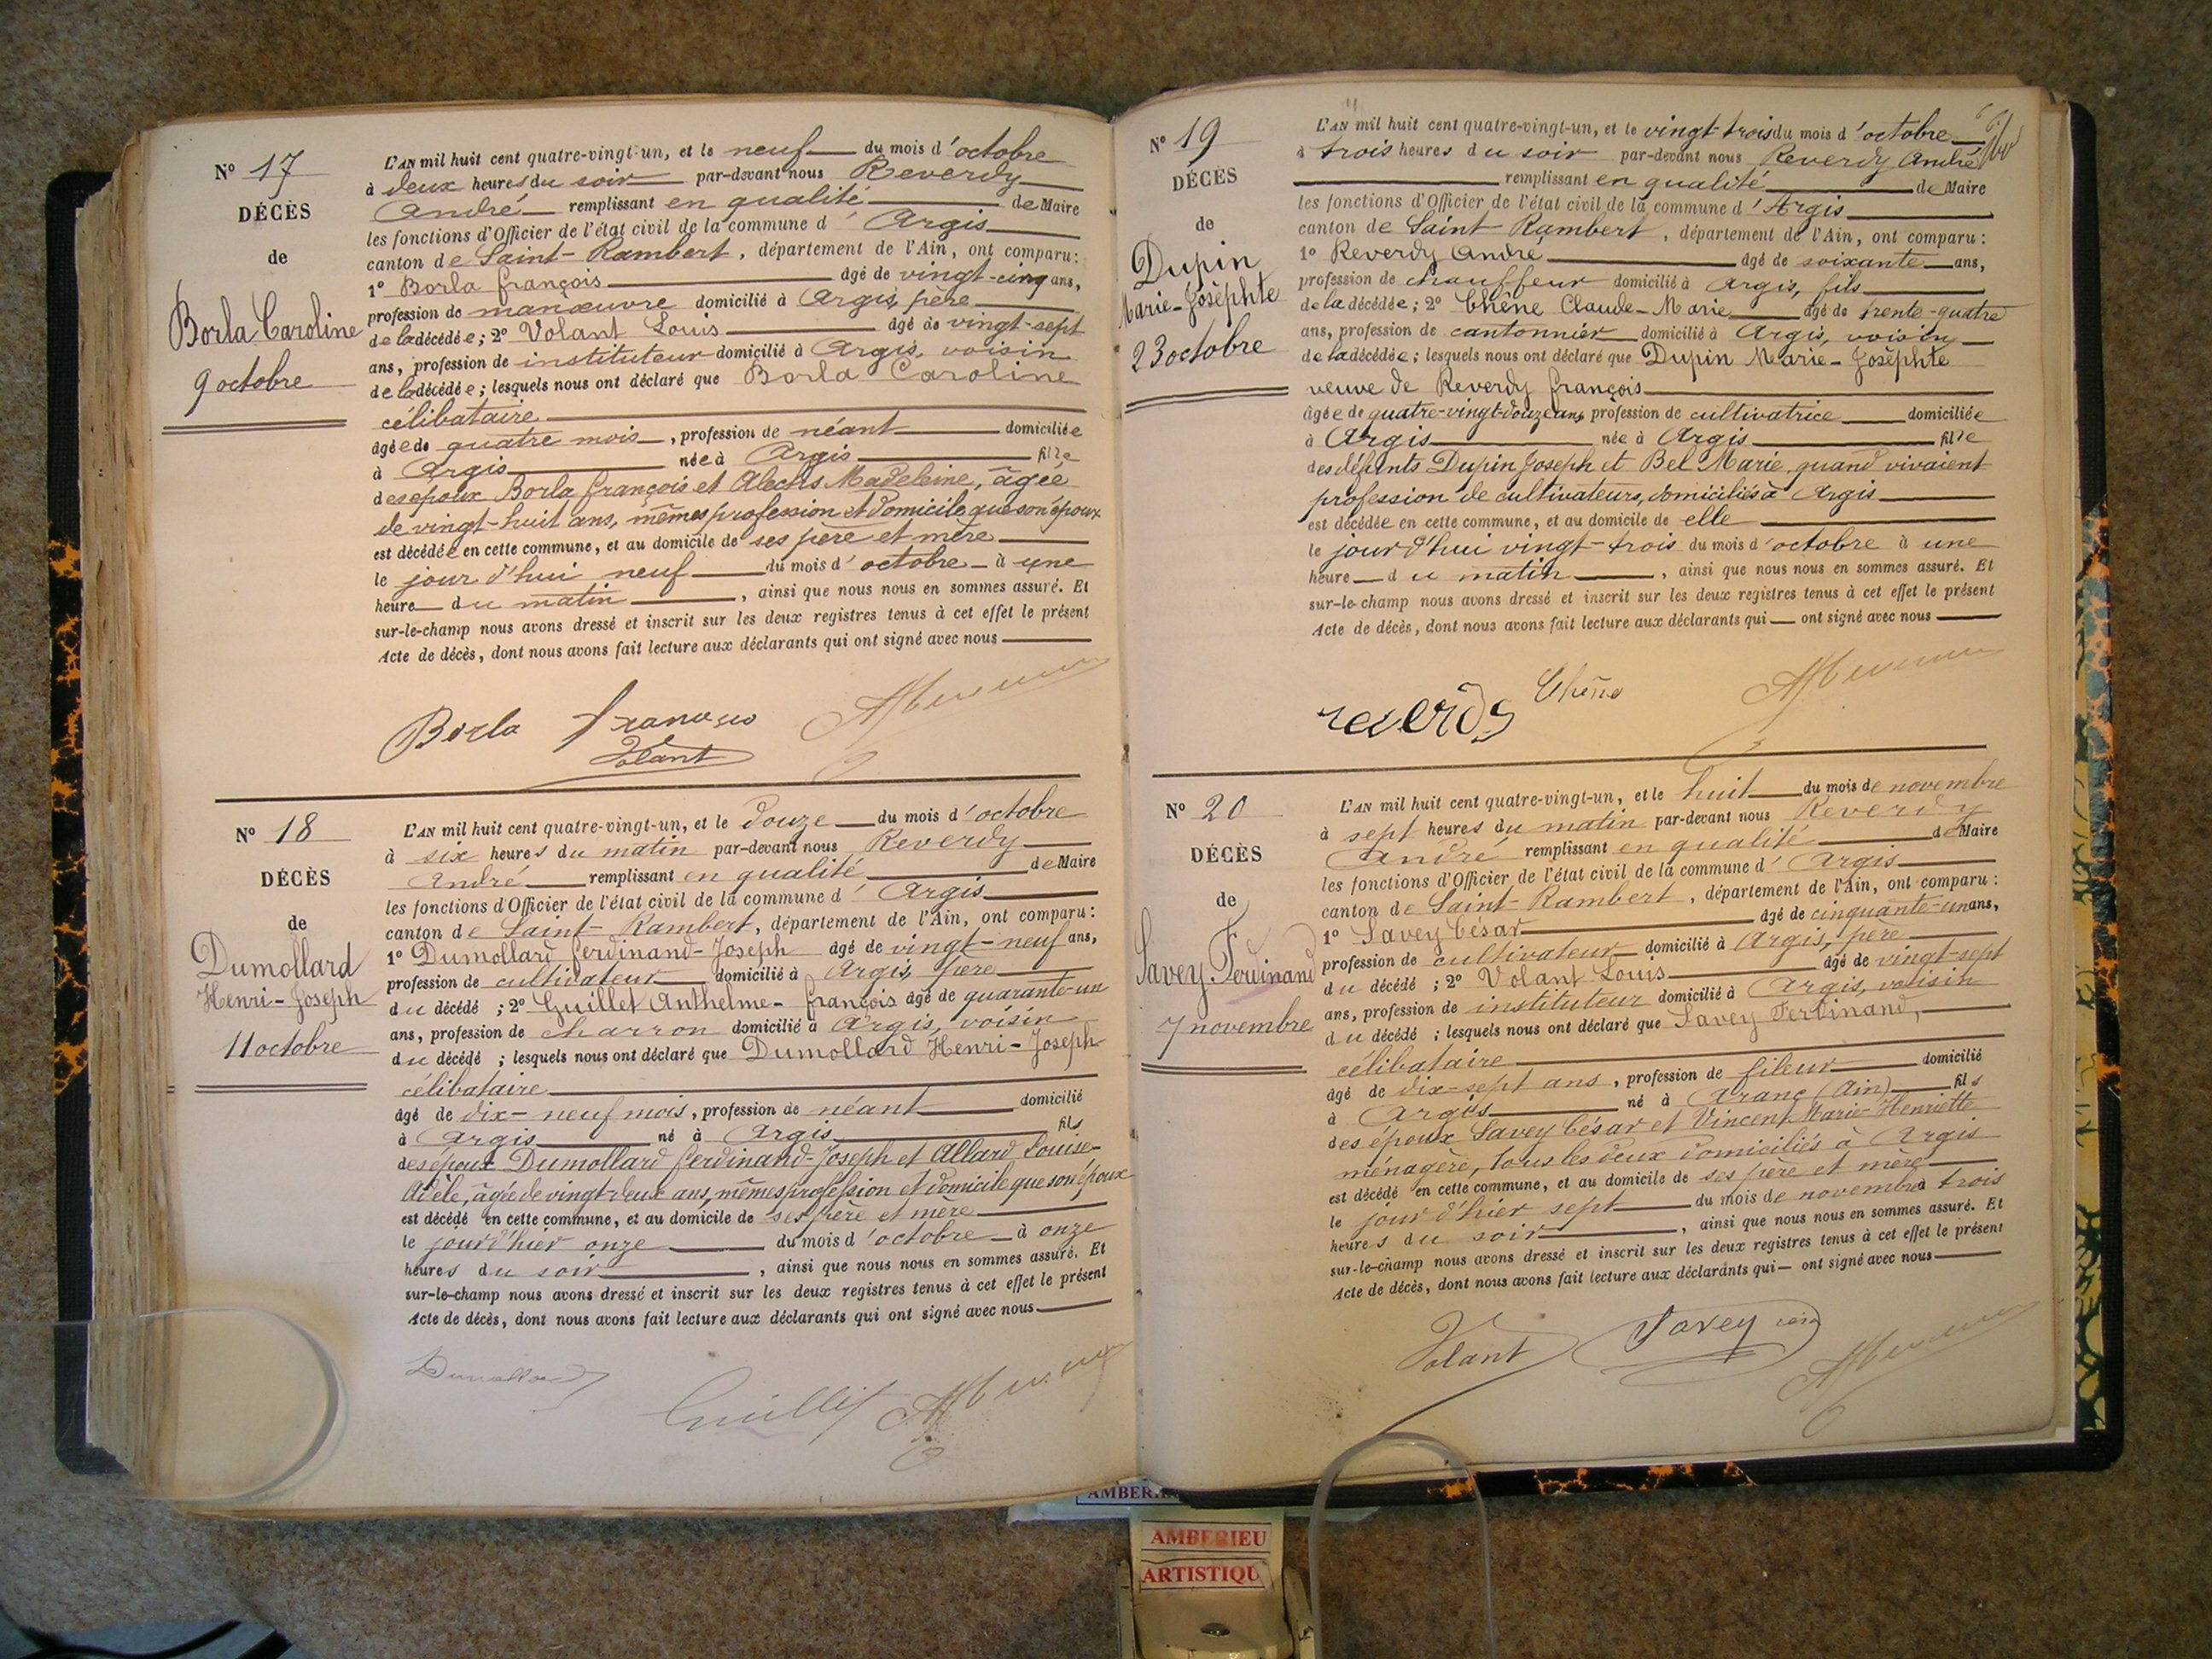 Nº 17
DÉCÈS
de
Borla Caroline
9 octobre
L'AN mil huit cent quatre-vingt-un, et le neuf du mois d'octobre
à deux heures du soir par-devant nous Reverdy
André remplissant en qualité de Maire
les fonctions d'Officier de l'état civil de la commune d'Argis
canton de Saint-Rambert, département de l'Ain, ont comparu:
1º Borla françois âgé de vingt-cinq ans,
profession de manœuvre domicilié à Argis, père
de la décédée; 2º Volant Louis âgé de vingt-sept
ans, profession de instituteur domicilié à Argis, voisin
de la décédée; lesquels nous ont déclaré que Borla Caroline
célibataire
âgée de quatre mois, profession de néant domiciliée
à Argis née à Argis fille
des époux Borla françois et Alechs Madeleine, âgée
de vingt-huit ans, mêmes profession et domicile que son époux
est décédée en cette commune, et au domicile de ses père et mère
le jour d'hui neuf du mois d'octobre à une
heure du matin, ainsi que nous nous en sommes assuré. Et
sur-le-champ nous avons dressé et inscrit sur les deux registres tenus à cet effet le présent
Acte de décès, dont nous avons fait lecture aux déclarants qui ont signé avec nous
Borla
Volant
Nº 18
DÉCÈS
de
Dumollard
Henri-Joseph
11 octobre
L'AN mil huit cent quatre-vingt-un, et le douze du mois d'octobre
à six heures du matin par-devant nous Reverdy
André remplissant en qualité de Maire
les fonctions d'Officier de l'état civil de la commune d'Argis
canton de Saint-Rambert, département de l'Ain, ont comparu:
1º Dumollard ferdinand-Joseph âgé de vingt-neuf ans,
profession de cultivateur domicilié à Argis, père
du décédé; 2º Guillet Anthelme-françois âgé de quarante-un
ans, profession de charron domicilié à Argis, voisin
du décédé; lesquels nous ont déclaré que Dumollard Henri-Joseph
célibataire
âgé de dix-neuf mois, profession de néant domicilié
à Argis né à Argis fils
des époux Dumollard ferdinand-Joseph et Allard Louise-
Adèle, âgée de vingt-deux ans, mêmes profession et domicile que son époux
est décédé en cette commune, et au domicile de ses père et mère
le jour d'hier onze du mois d'octobre à onze
heures du soir, ainsi que nous nous en sommes assuré. Et
sur-le-champ nous avons dressé et inscrit sur les deux registres tenus à cet effet le présent
Acte de décès, dont nous avons fait lecture aux déclarants qui ont signé avec nous
Dumollard
Guillet
Nº 19
DÉCÈS
de
Dupin
Marie-Josèphte
23 octobre
L'AN mil huit cent quatre-vingt-un, et le vingt-trois du mois d'octobre
à trois heures du soir par-devant nous Reverdy André
remplissant en qualité de Maire
les fonctions d'Officier de l'état civil de la commune d'Argis
canton de Saint-Rambert, département de l'Ain, ont comparu:
1º Reverdy André âgé de soixante ans,
profession de chauffeur domicilié à Argis, fils
de la décédée; 2º Chêne Claude-Marie âgé de trente-quatre
ans, profession de cantonnier domicilié à Argis, voisin
de la décédée; lesquels nous ont déclaré que Dupin Marie-Josèphte
veuve de Reverdy françois
âgée de quatre-vingt-douze ans, profession de cultivatrice domiciliée
à Argis née à Argis fille
des défunts Dupin Joseph et Bel Marie, quand vivaient
profession de cultivateurs, domiciliés à Argis
est décédée en cette commune, et au domicile de elle
le jour d'hui vingt-trois du mois d'octobre à une
heure du matin, ainsi que nous nous en sommes assuré. Et
sur-le-champ nous avons dressé et inscrit sur les deux registres tenus à cet effet le présent
Acte de décès, dont nous avons fait lecture aux déclarants qui ont signé avec nous
reverdy
Chêne
Nº 20
DÉCÈS
de
Savey Ferdinand
7 novembre
L'AN mil huit cent quatre-vingt-un, et le huit du mois de novembre
à sept heures du matin par-devant nous Reverdy
André remplissant en qualité de Maire
les fonctions d'Officier de l'état civil de la commune d'Argis
canton de Saint-Rambert, département de l'Ain, ont comparu:
1º Savey César âgé de cinquante-un ans,
profession de cultivateur domicilié à Argis, père
du décédé; 2º Volant Louis âgé de vingt-sept
ans, profession de instituteur domicilié à Argis, voisin
du décédé; lesquels nous ont déclaré que Savey Ferdinand,
célibataire
âgé de dix-sept ans, profession de fileur domicilié
à Argis né à Aranc (Ain) fils
des époux Savey César et Vincent Marie-Henriette
ménagère, tous les deux domiciliés à Argis
est décédé en cette commune, et au domicile de ses père et mère
le jour d'hier sept du mois de novembre à trois
heures du soir, ainsi que nous nous en sommes assuré. Et
sur-le-champ nous avons dressé et inscrit sur les deux registres tenus à cet effet le présent
Acte de décès, dont nous avons fait lecture aux déclarants qui ont signé avec nous
Volant
Savey
AMBERIEU
ARTISTIQU